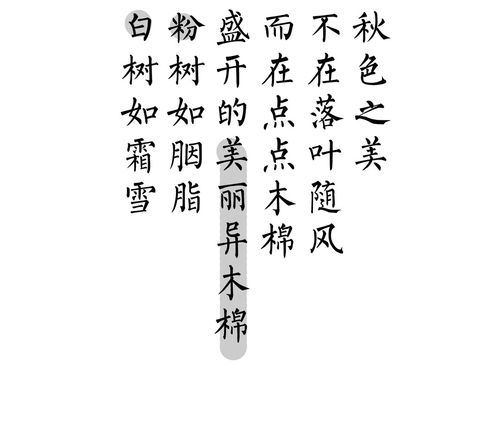 秋色之美
不在落叶随风
而在点点木棉
盛开的美丽异木棉
粉树如胭脂
白树如霜雪